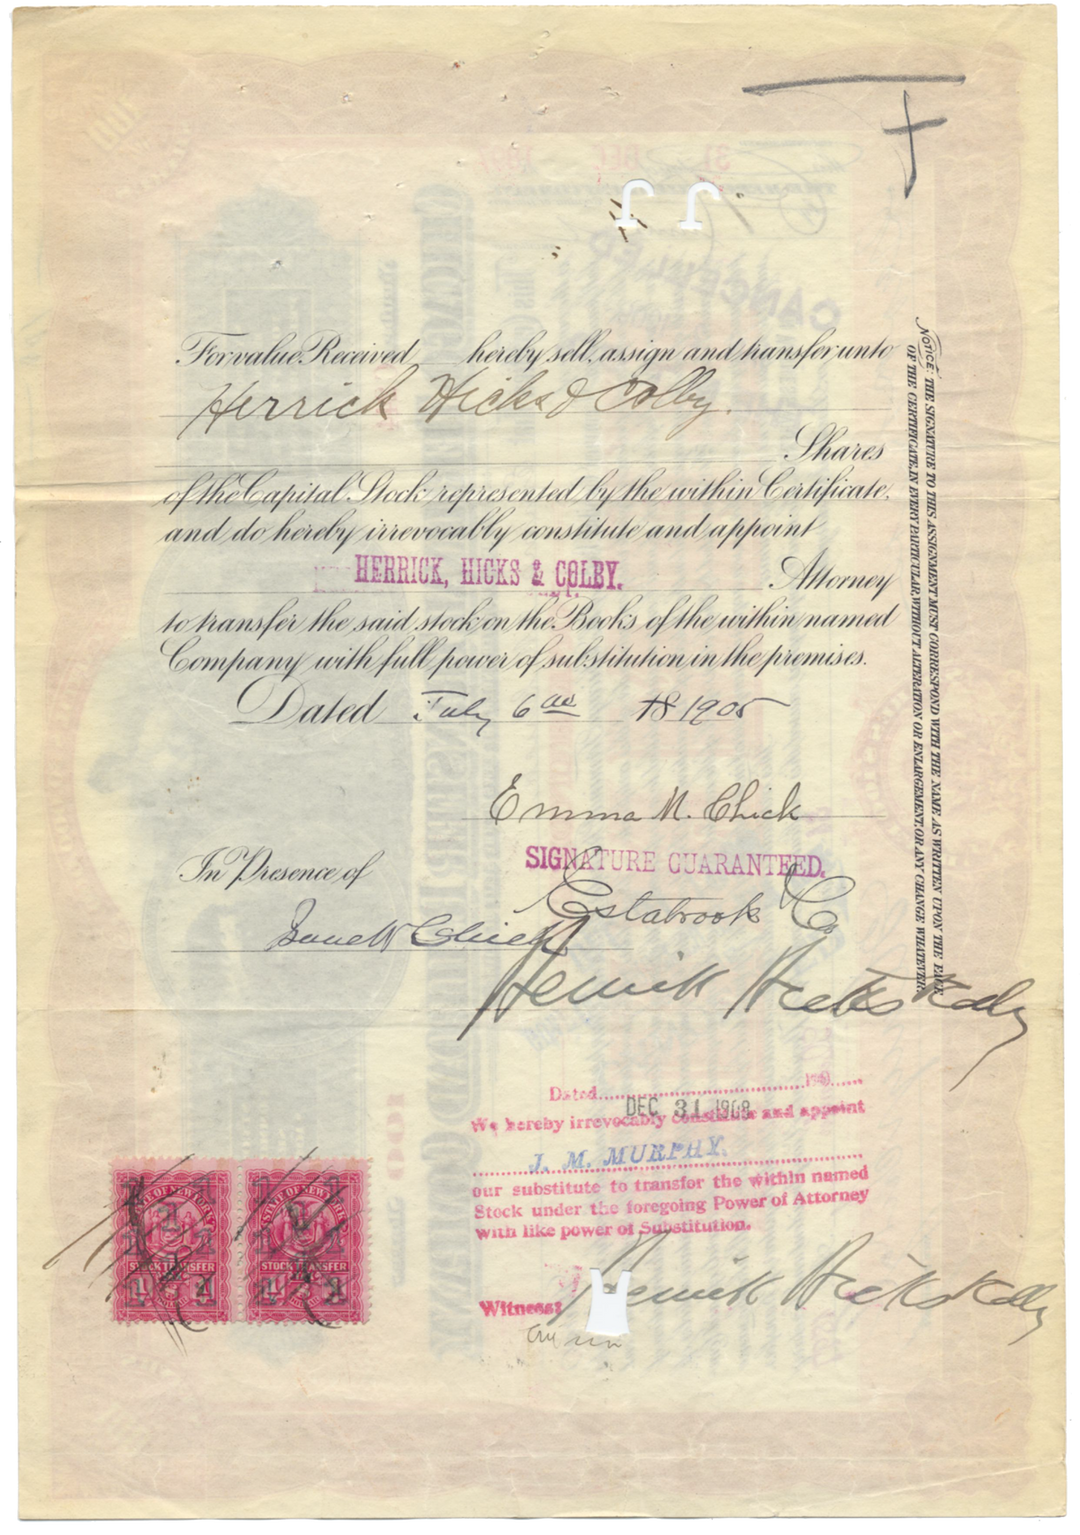 For value Received hereby sell, assign and transfer unto
Herrick Hicks & Colby.
Shares
of the Capital Stock represented by the within Certificate,
and do hereby irrevocably constitute and appoint
HERRICK, HICKS & COLBY.
Attorney
to transfer the said stock on the Books of the within named
Company with full power of substitution in the premises.
Dated July 6 18 1905
Emma M. Chick
SIGNATURE GUARANTEED.
In Presence of
Estabrook & Co
Chick
Herrick Hicks & Colby
NOTICE: THE SIGNATURE TO THIS ASSIGNMENT MUST CORRESPOND WITH THE NAME AS WRITTEN UPON THE FACE
OF THE CERTIFICATE, IN EVERY PARTICULAR, WITHOUT ALTERATION OR ENLARGEMENT, OR ANY CHANGE WHATEVER.
Dated 190
DEC 31 1908
We hereby irrevocably constitute and appoint
J. M. MURPHY.
our substitute to transfer the within named
Stock under the foregoing Power of Attorney
with like power of Substitution.
Herrick Hicks & Colby
Witness:
STATE OF NEW YORK
STOCK TRANSFER
STATE OF NEW YORK
STOCK TRANSFER